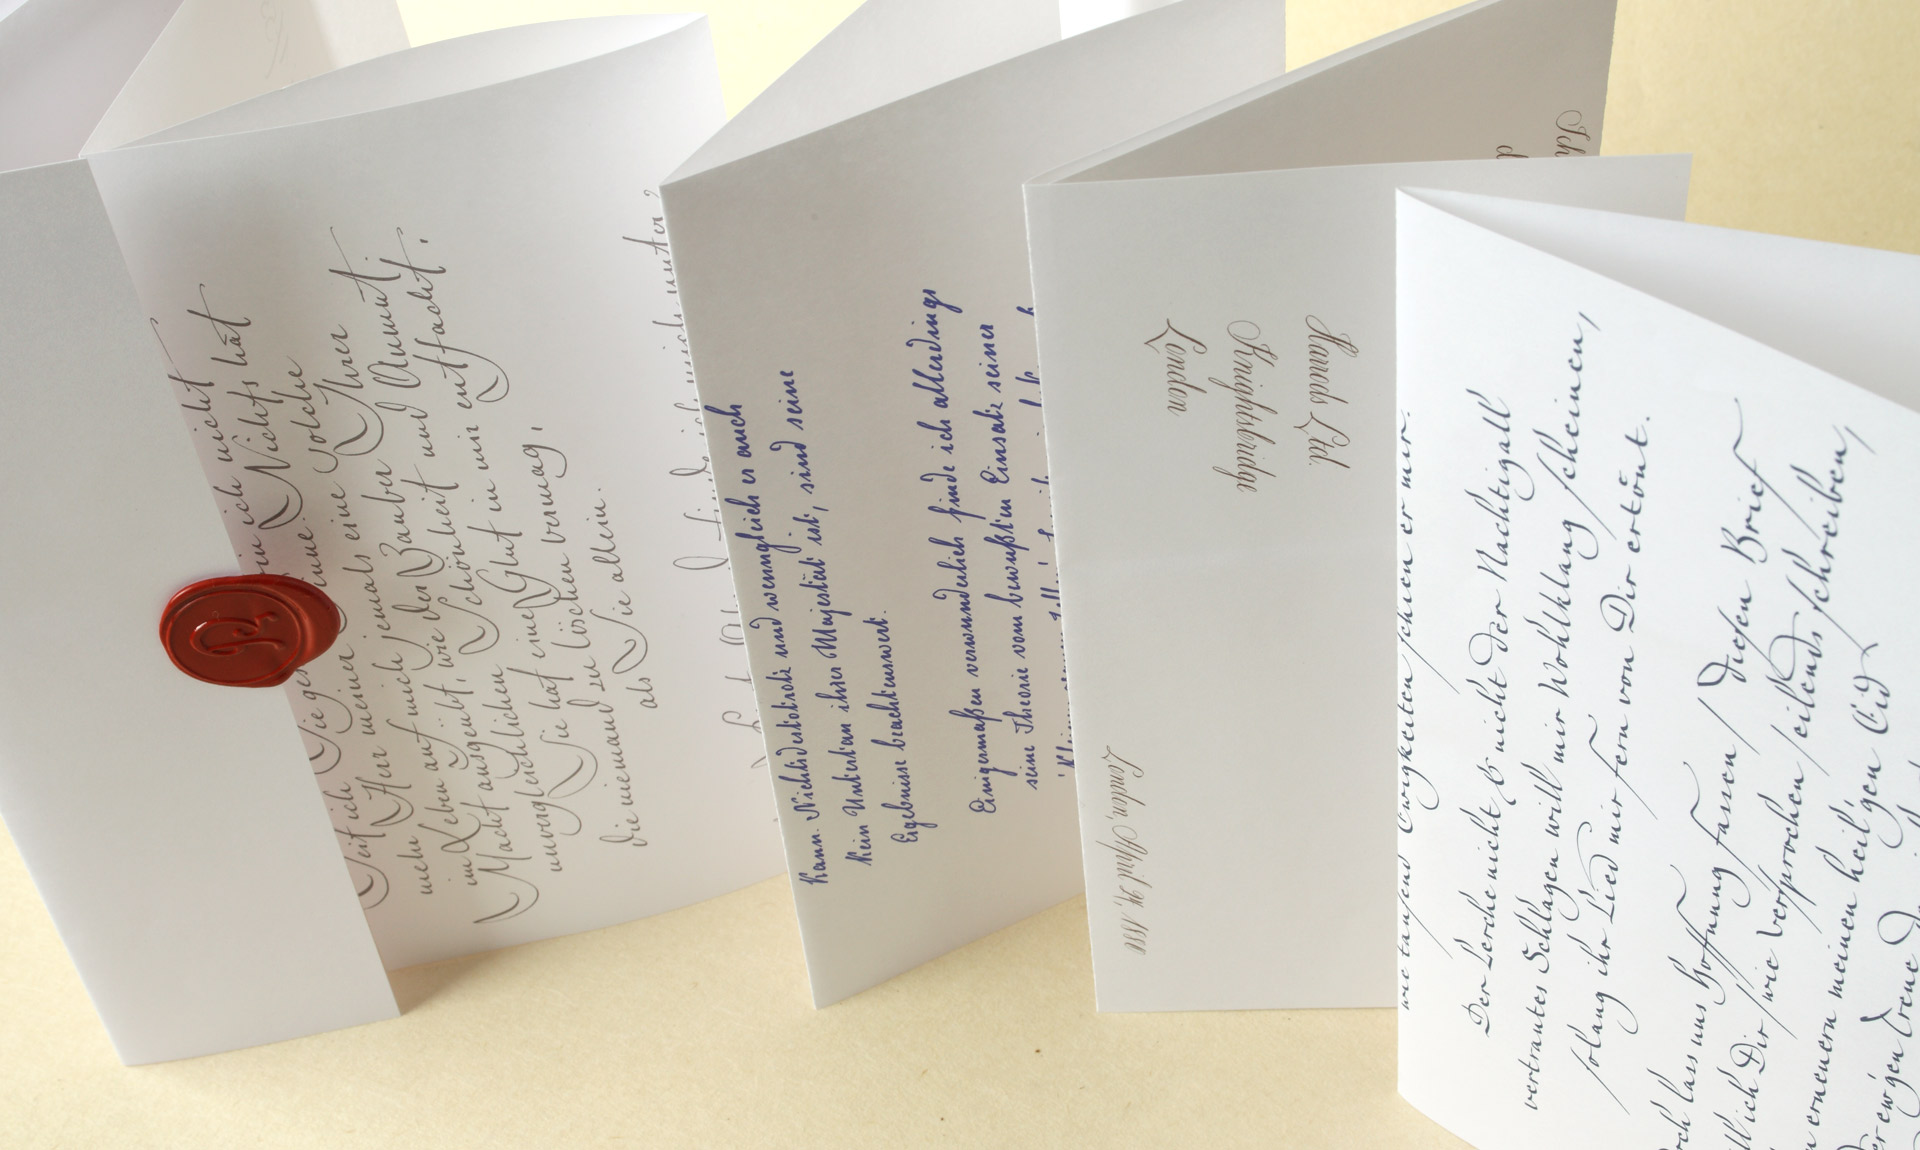 ich nicht
Nichts hat
solche
Seit ich
Herr meiner jemals eine Ihrer
mein Leben auf mich, der Zauber Anmut.
im ausgeübt, wie Schönheit und
Macht Glut in mir entfacht.
unvergleichlichen eine
Sie hat zu löschen vermag,
die niemand
als Sie allein.
finde ich mich unter,
kann. Nichtsdestotrotz und wenngleich er auch
kein Untertan ihrer Majestät ist, sind seine
Ergebnisse beachtenswert.
Einigermaßen verwunderlich finde ich allerdings
seine Theorie vom bewußten Einsatz seiner
Harrods Ltd.
Knightsbridge
London
London, April
Ich
d
wie tausend Ewigkeiten schien er mir.
Der Lerche nicht & nicht der Nachtigall
vertrautes Schlagen will mir Wohlklang scheinen,
solang ihr Lied mir fern von Dir ertönt.
lass uns Hoffnung fassen! Diesen Brief
will ich Dir, wie versprochen, eilends schreiben,
erneuern meinen heil'gen Eid
ew'gen Treue